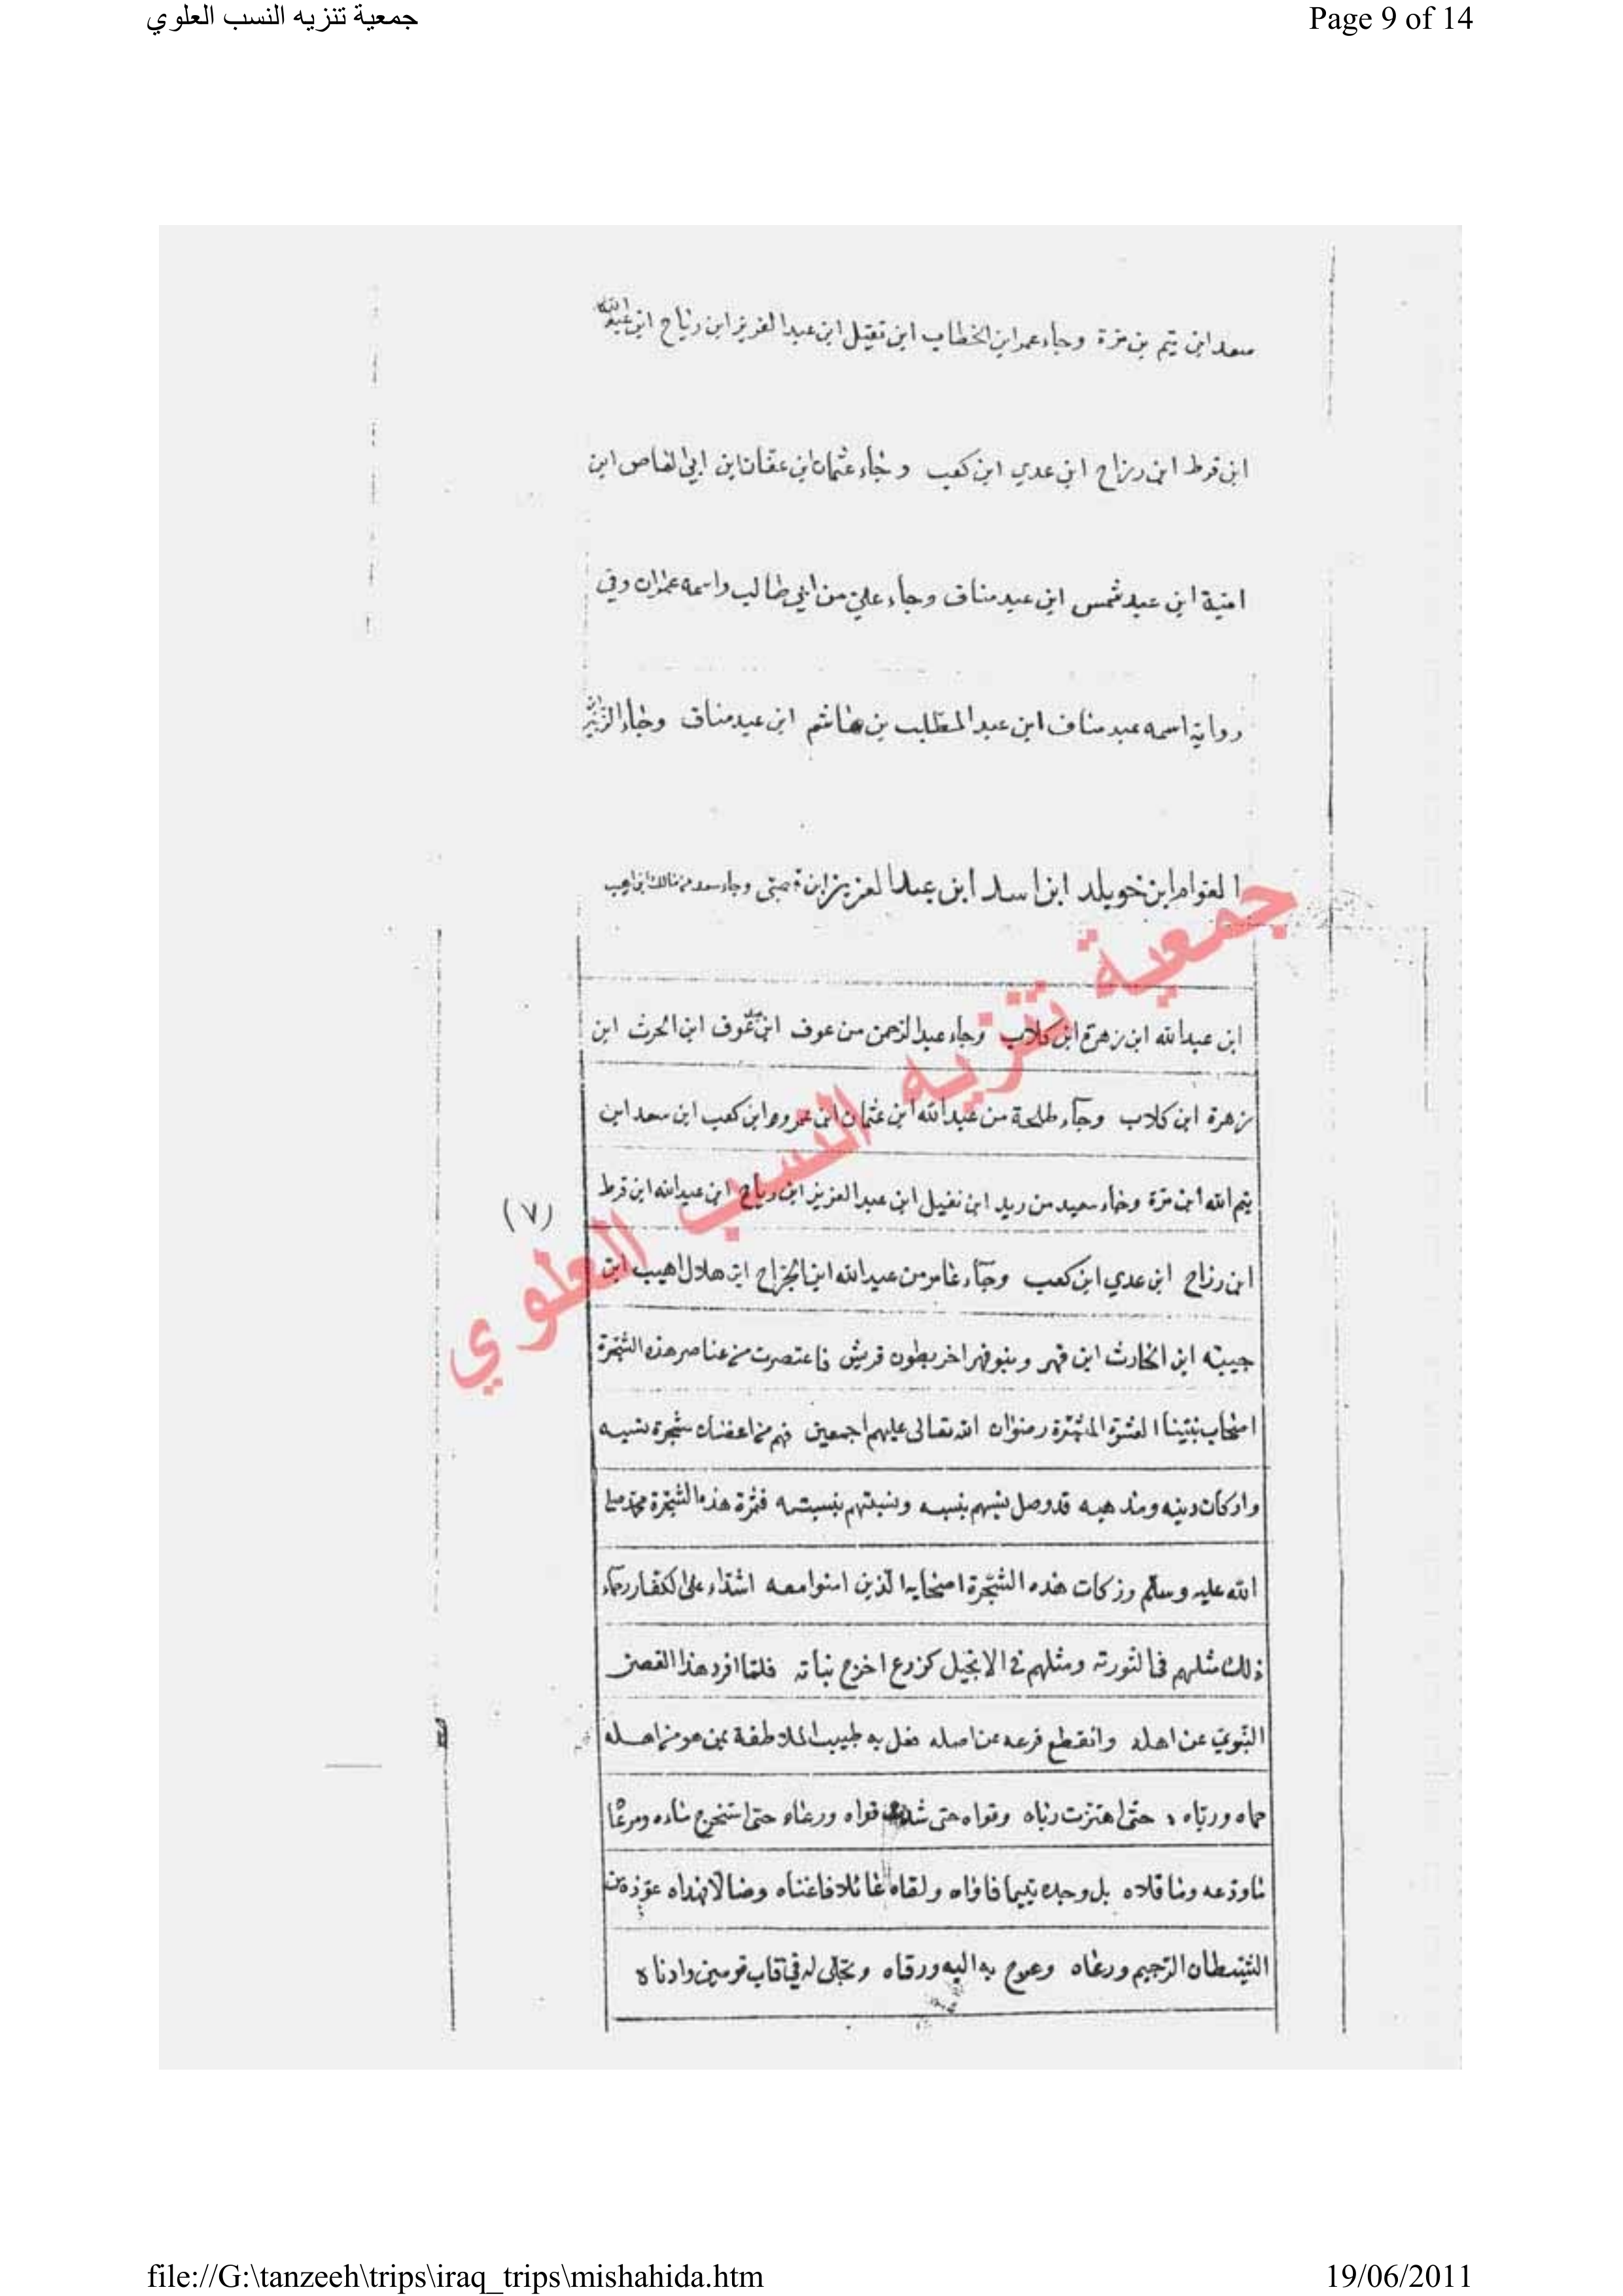 جمعية تنزيه النسب العلوي
Page 9 of 14
سعد ابن تيم بن مرة وجاء عمر ابن الخطاب ابن نفيل ابن عبد العزيز ابن رياح ابن عبدالله
ابن قرط ابن رزاح ابن عدي ابن كعب وجاء عثمان ابن عفان ابن ابي العاص ابن
امية ابن عبد شمس ابن عبد مناف وجاء علي من ابي طالب واسمه عمران وفي
رواية اسمه عبد مناف ابن عبد المطلب بن هاشم ابن عبد مناف وجاء الزبير
العوام ابن خويلد ابن اسد ابن عبد العزيز ابن وجاء سعد من مالك ابن اهيب
ابن عبدالله ابن زهرة ابن كلاب وجاء عبد الرحمن من عوف ابن عوف ابن الحرث ابن
زهرة ابن كلاب وجآء طلحة من عبيدالله ابن عثمان ابن عمرو ابن كعب ابن سعد ابن
تيم الله ابن مرة وجاء سعيد من زيد ابن نفيل ابن عبد العزيز ابن رياح ابن عبدالله ابن قرط
(٧)
ابن رزاح ابن عدي ابن كعب وجآء عامر من عبدالله ابن الجراح ابن هلال اهيب ابن
ابن الحارث ابن فهر وبنو فهر اخر بطون قريش فاعتصرت من عناصر هذه الشجرة
اصحاب نبينا العشرة المبشرة رضوان الله تعالى عليهم اجمعين فهم من اغصان شجرة نسبه
واركان دينه ومذهبه قد وصل نسبهم بنسبه ونسبتهم بنسبته فثمرة هذه الشجرة محمد صلى
الله عليه وسلم وزكات هذه الشجرة اصحابه الذين امنوا معه اشداء على الكفار رحماء
ذلك مثلهم في التورته ومثلهم في الانجيل كزرع اخرج نباته فلما افرد هذا الغصن
النبوي عن اهله وانقطع فرعه عن اصله به طبيب الملاطفة بمن هو من اهله
حماه ورباه حتى اهتزت رباه وقواه حتى قواه ورعاه حتى استخرج ماءه ومرعا
ما ودعه وما قلاه بل وجده يتيما فاواه ولقاه عائلا فاغناه وضالا فهداه عوذه من
الشيطان الرجيم ورعاه وعرج به اليه ورقاه وتجلى له في قاب قوسين وادناه
جمعية تنزيه النسب العلوي
file://G:\tanzeeh\trips\iraq_trips\mishahida.htm
19/06/2011